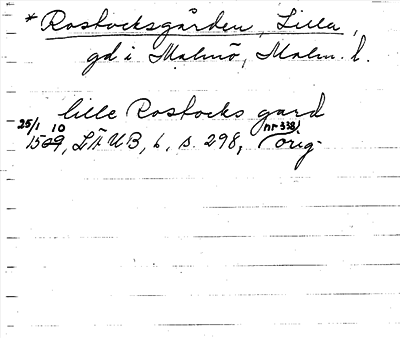 * Rostocksgården, Lilla,
gd i Malmö, Malm. l.
lille Rostocks gard
25/1 10
1509, LÄUB, 6, s. 298, (nr 338) orig.